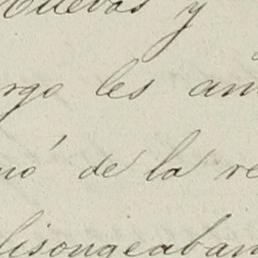 nuevas y
rgo les an
nó de la re
lisongeaban